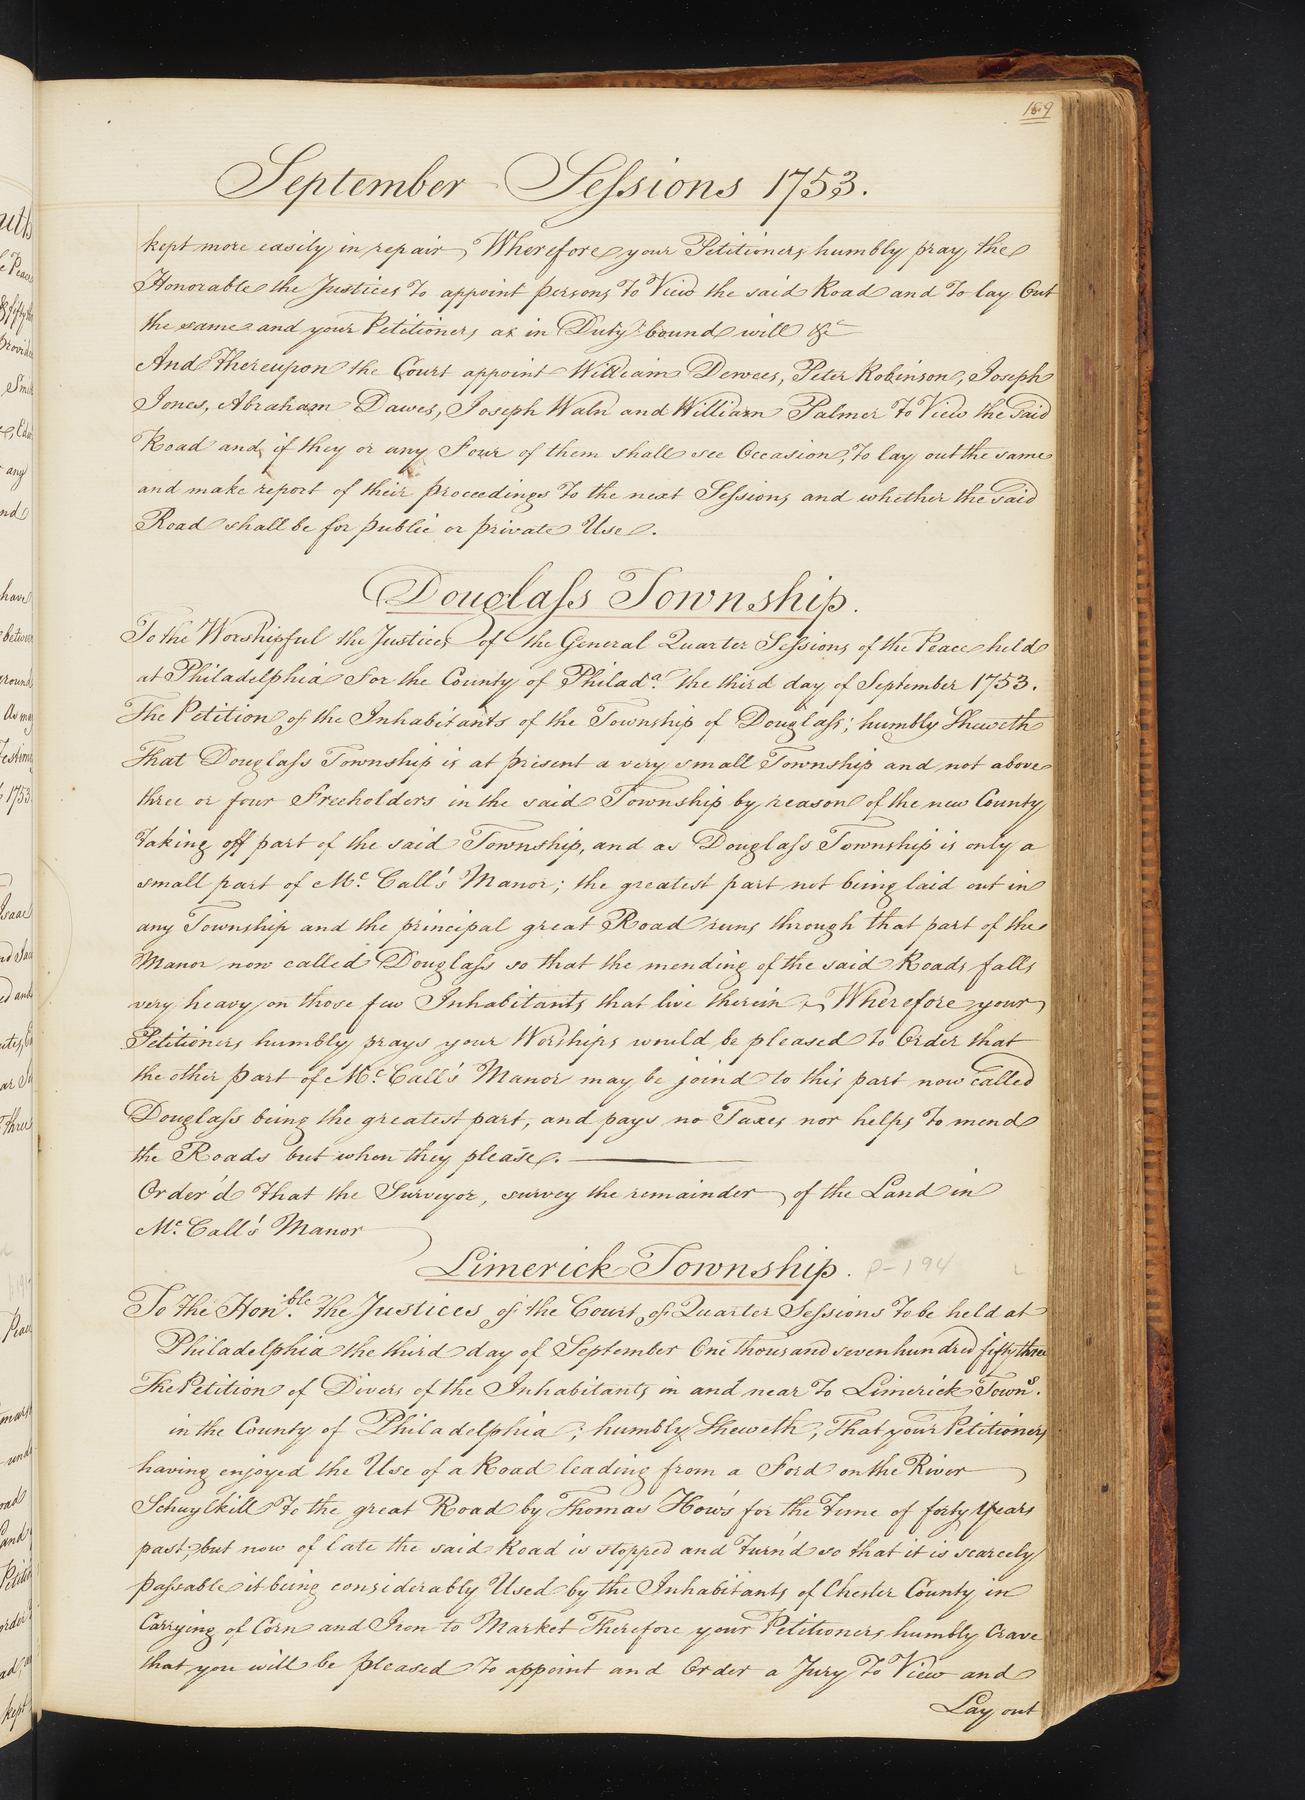 189
September Sessions 1753.
kept more easily in repair, Wherefore your Petitioners humbly pray the
Honorable the Justices To appoint persons To View the said Road and To lay Out
the same and your Petitioners as in Duty bound will &c
And thereupon the Court appoint William Dewees, Peter Robinson, Joseph
Jones, Abraham Dawes, Joseph Waln and William Palmer To View the said
Road and if they or any Four of them shall see Occasion, To lay out the same
and make report of their proceedings To the next Sessions and whether the said
Road shall be for public or private Use.
Douglass Township.
To the Worshipful the Justices of the General Quarter Sessions of the Peace held
at Philadelphia For the County of Philada. the third day of September 1753.
The Petition of the Inhabitants of the Township of Douglass; humbly Sheweth
That Douglass Township is at present a very small Township and not above
three or four Freeholders in the said Township by reason of the new County
taking off part of the said Township, and as Douglass Township is only a
small part of Mc. Call's Manor; the greatest part not being laid out in
any Township and the principal great Road runs through that part of the
Manor now called Douglass so that the mending of the said Roads falls
very heavy on those few Inhabitants that live therein, Wherefore your
Petitioners humbly prays your Worships would be pleased To Order that
the other part of Mc. Call's Manor may be joind to this part now called
Douglass being the greatest part, and pays no Taxes nor helps To mend
the Roads but when they please.
Order'd That the Surveyor, survey the remainder of the Land in
Mc. Call's Manor
Limerick Township. P-194
To the Honble. the Justices of the Court of Quarter Sessions To be held at
Philadelphia the third day of September One thousand seven hundred fifty three
The Petition of Divers of the Inhabitants in and near To Limerick Towns.
in the County of Philadelphia; humbly Sheweth, That your Petitioners
having enjoyed the Use of a Road leading from a Ford on the River
Schuylkill To the great Road by Thomas How's for the Time of forty Years
past; but now of late the said Road is stopped and Turn'd so that it is scarcely
passable it being considerably Used by the Inhabitants of Chester County in
Carrying of Corn and Iron to Market Therefore your Petitioners humbly Crave
that you will be pleased To appoint and Order a Jury To View and
Lay out